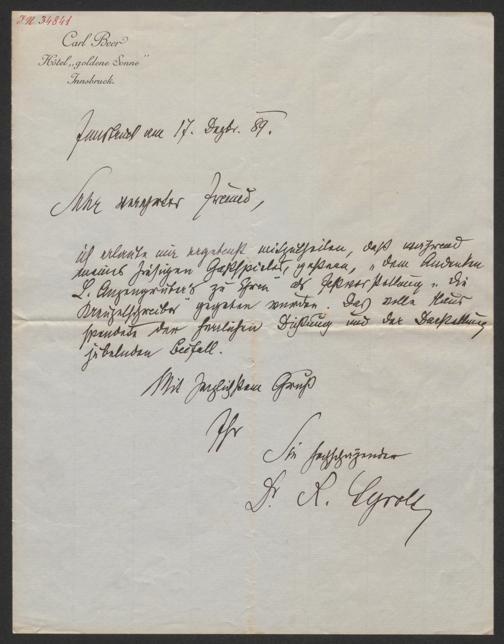 I.N. 34841
Carl Beer
Hôtel „goldene Sonne"
Innsbruck.
Innsbruck am 17. Dezbr. 89.
Sehr verehrter Freund,
ich erlaube mir ergebenst mitzutheilen, daß während
meines hiesigen Gastspieles, gestern, „dem Andenken
L. Anzengrubers zu Ehren als Festvorstellung" „die
Kreuzelschreiber" gegeben wurden. Das volle Haus
spendete der herrlichen Dichtung und der Darstellung
jubelnden Beifall.
Mit herzlichstem Gruß
Ihr
Sie hochschätzender
Dr. R. Tyrolt